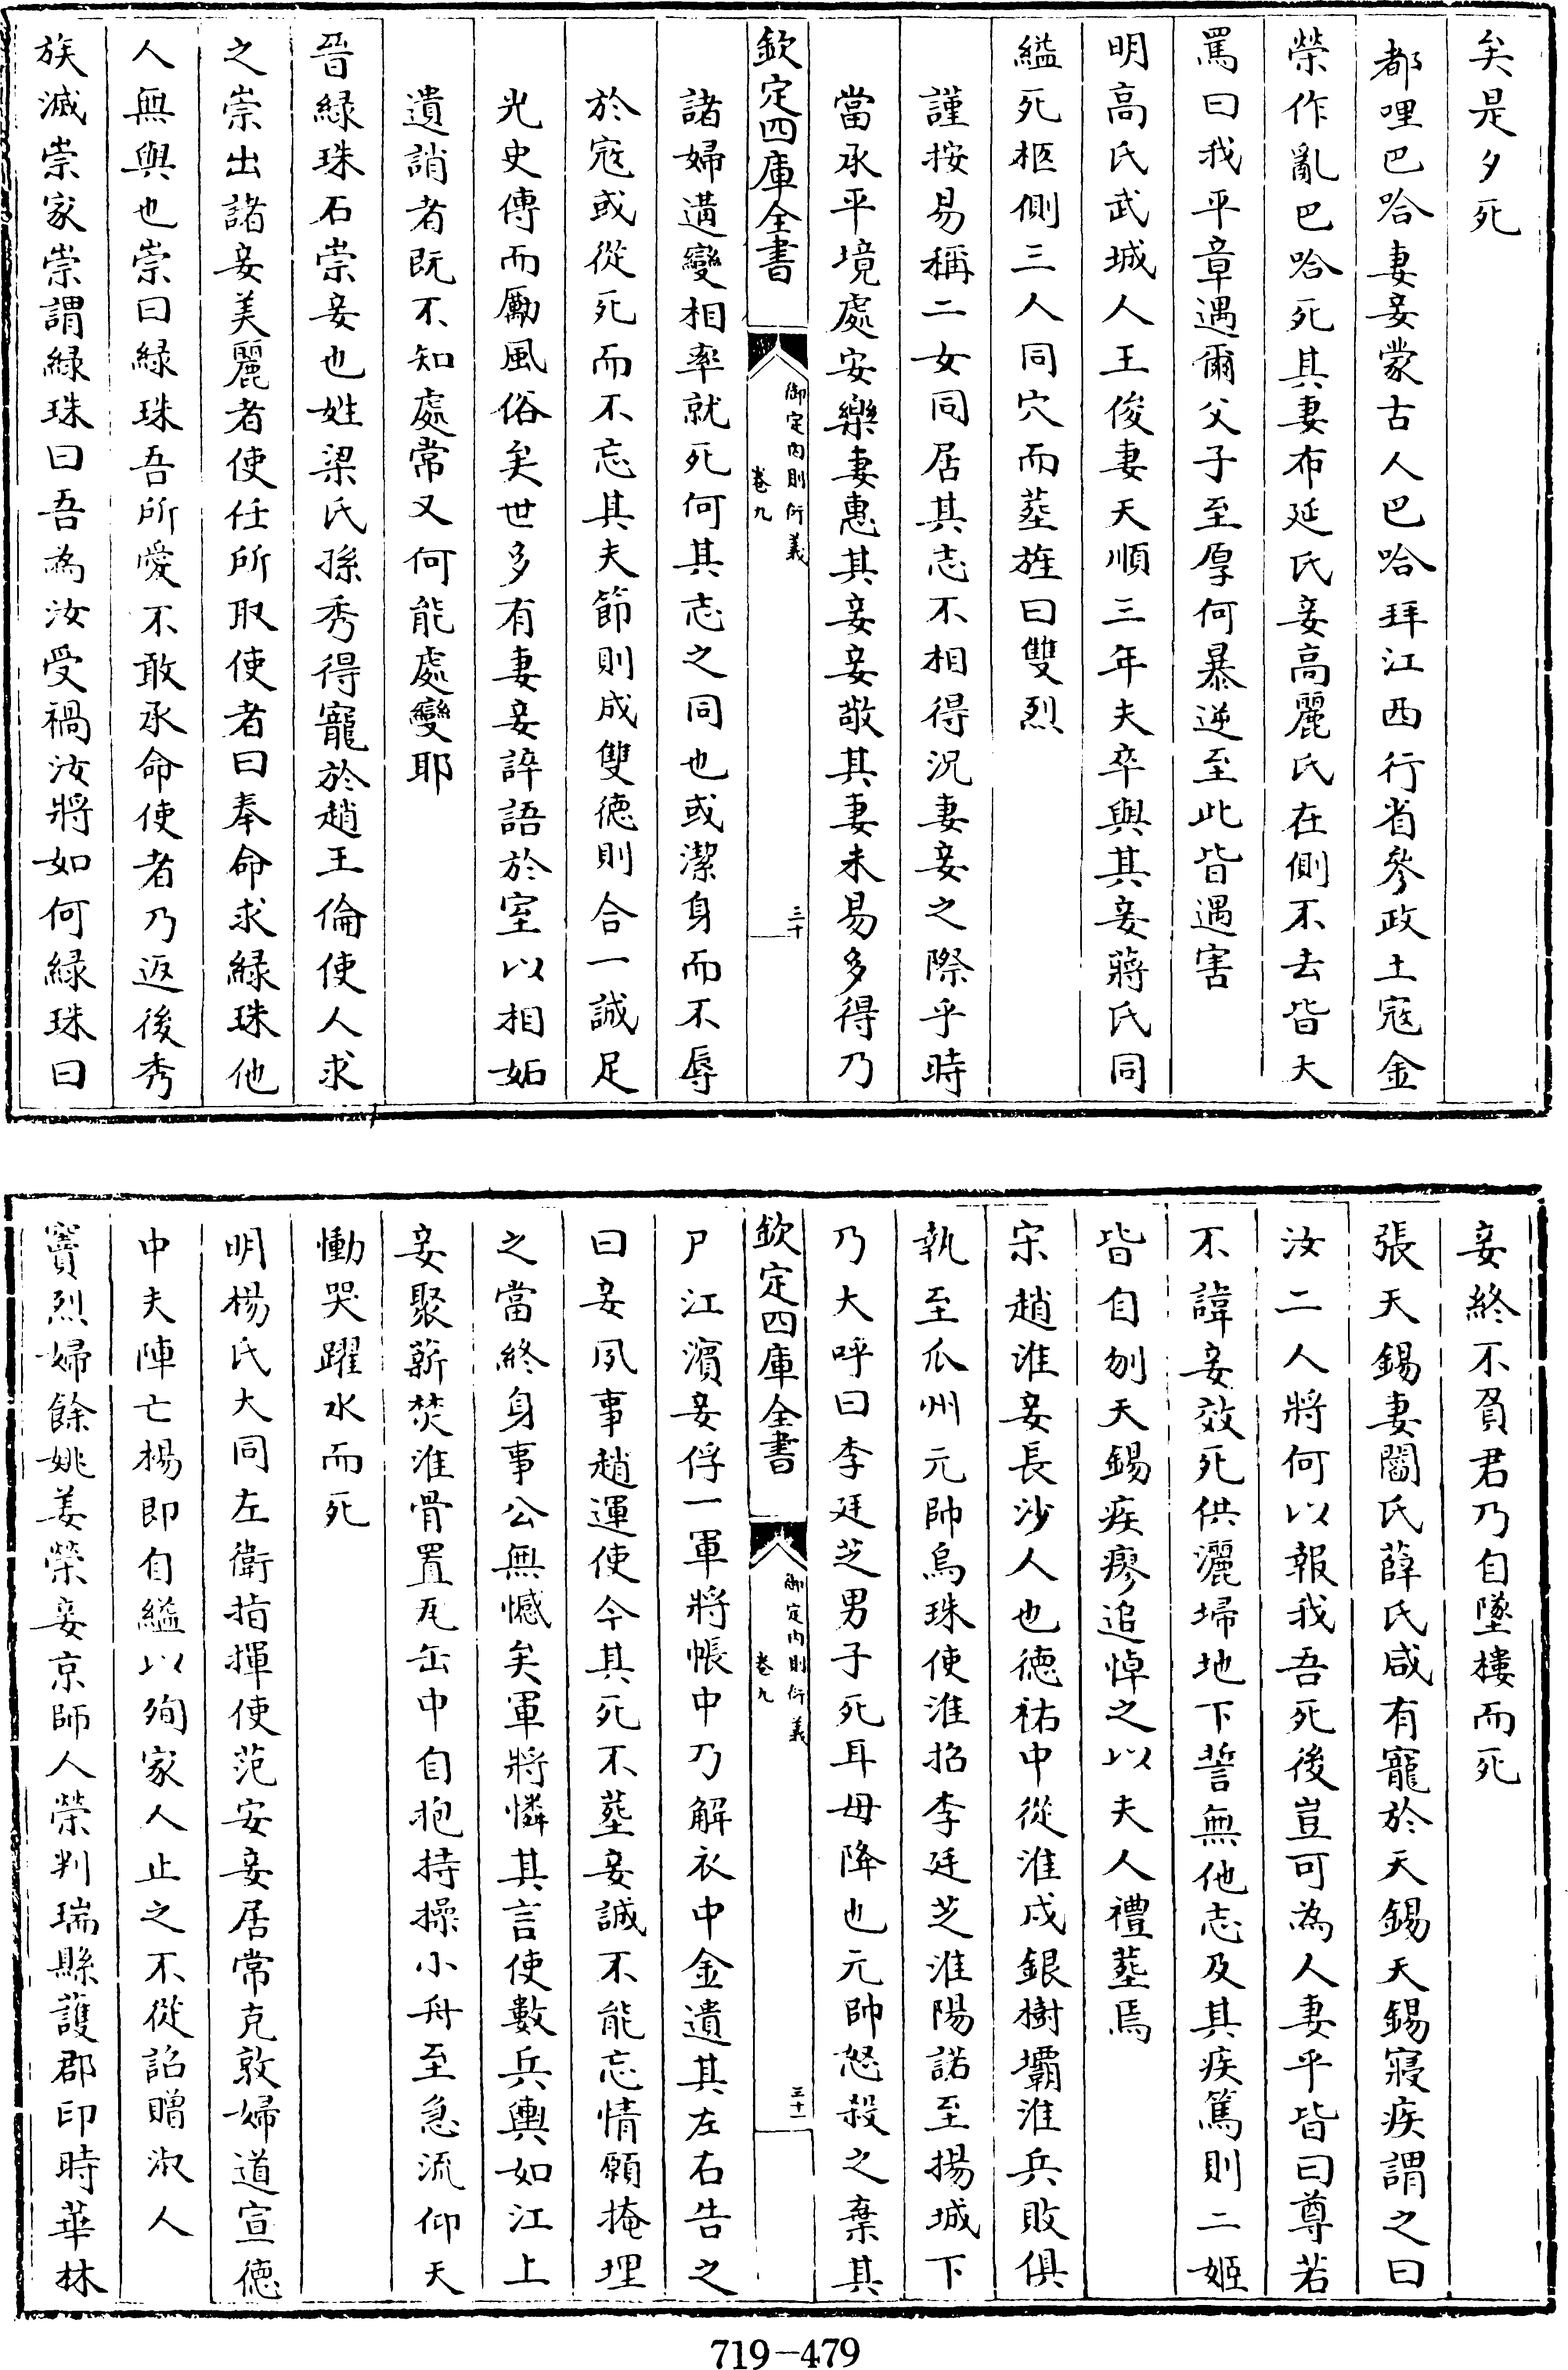 矣是夕死
都哩巴哈妻妾蒙古人巴哈拜江西行省參政土寇金
榮作亂巴哈死其妻布延氏妾高麗氏在側不去皆大
罵曰我平章遇爾父子至厚何暴逆至此皆遇害
明高氏武城人王俊妻天順三年夫卒與其妾蔣氏同
縊死柩側三人同穴而塟旌曰雙烈
謹按易稱二女同居其志不相得況妻妾之際乎時
當承平境處安樂妻惠其妾妾敬其妻未易多得乃
欽定四庫全書
御定內則衍義
卷九
三十
諸婦遘變相率就死何其志之同也或潔身而不辱
於寇或從死而不忘其夫節則成雙德則合一誠足
光史傳而勵風俗矣世多有妻妾誶語於室以相妬
遺誚者既不知處常又何能處變耶
晉緑珠石崇妾也姓梁氏孫秀得寵於趙王倫使人求
之崇出諸妾美麗者使任所取使者曰奉命求緑珠他
人無與也崇曰緑珠吾所愛不敢承命使者乃返後秀
族滅崇家崇謂緑珠曰吾為汝受禍汝將如何緑珠曰
妾終不負君乃自墜樓而死
張天錫妻閻氏薛氏咸有寵於天錫天錫寢疾謂之曰
汝二人將何以報我吾死後豈可為人妻乎皆曰尊若
不諱妾效死供灑埽地下誓無他志及其疾篤則二姬
皆自刎天錫疾瘳追悼之以夫人禮塟焉
宋趙淮妾長沙人也德祐中從淮戍銀樹壩淮兵敗俱
執至瓜州元帥烏珠使淮招李廷芝淮陽諾至揚城下
乃大呼曰李廷芝男子死耳毋降也元帥怒殺之棄其
欽定四庫全書
御定內則衍義
卷九
三十一
尸江濱妾俘一軍將帳中乃解衣中金遺其左右告之
曰妾夙事趙運使今其死不塟妾誠不能忘情願掩埋
之當終身事公無憾矣軍將憐其言使數兵輿如江上
妾聚薪焚淮骨置瓦缶中自抱持操小舟至急流仰天
慟哭躍水而死
明楊氏大同左衛指揮使范安妾居常克敦婦道宣德
中夫陣亡楊即自縊以殉家人止之不從詔贈淑人
竇烈婦餘姚姜榮妾京師人榮判瑞縣護郡印時華林
719-479